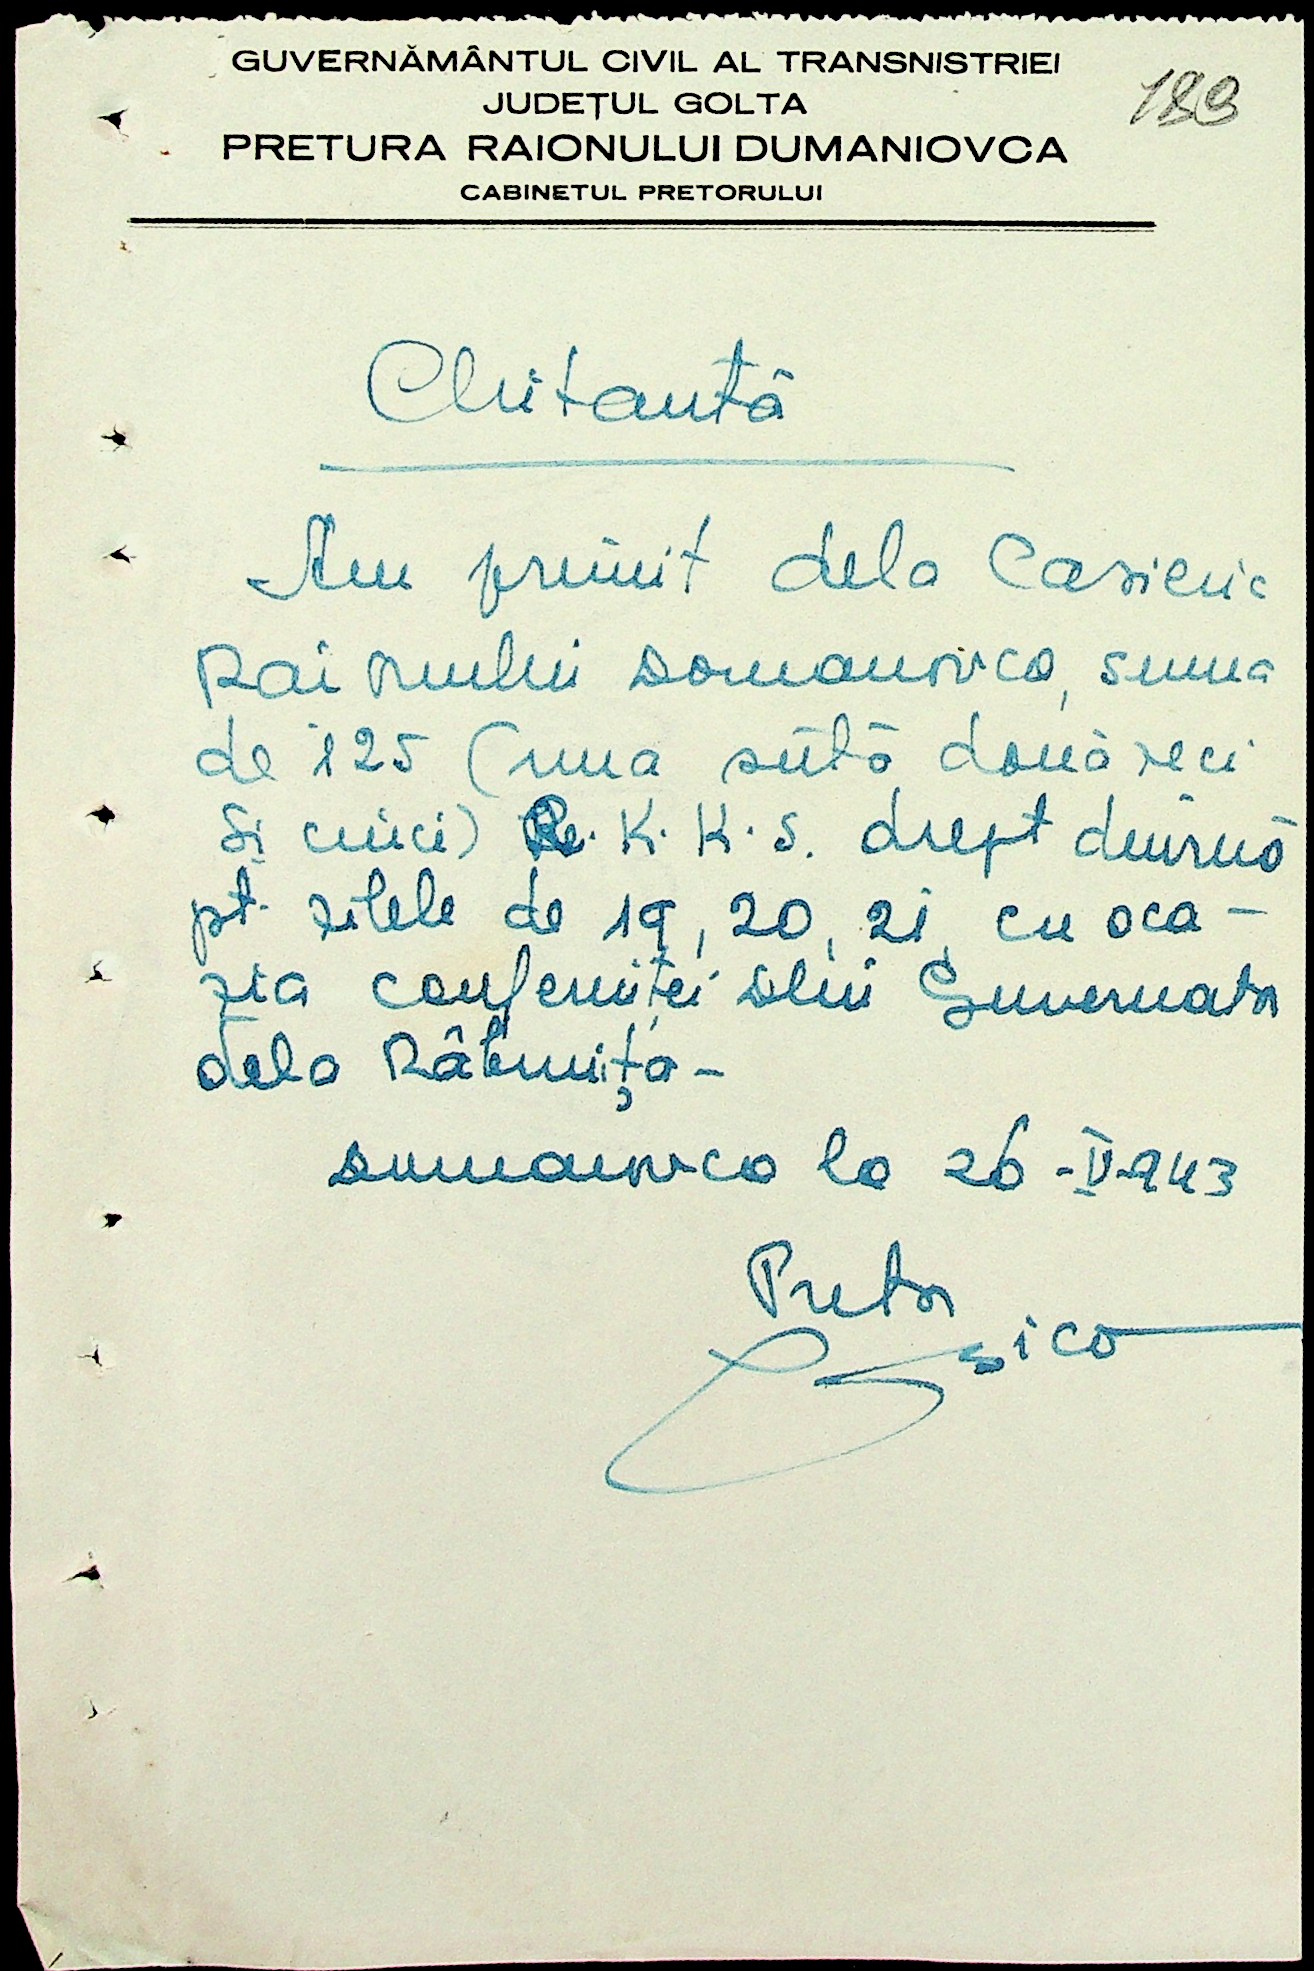 GUVERNĂMÂNTUL CIVIL AL TRANSNISTRIEI
JUDEȚUL GOLTA
PRETURA RAIONULUI DUMANIOVCA
CABINETUL PRETORULUI
189
Chitantă
Am primit dela Casieria
Raionului Domanovca, suma
de 125 (una sută douăzeci
și cinci) R. K. K. S. drept diurnă
pt. zilele de 19, 20, 21, cu oca-
zia conferinței Dlui Guvernator
dela Râbnița-
Dumanovca la 26-V-943
Pretor